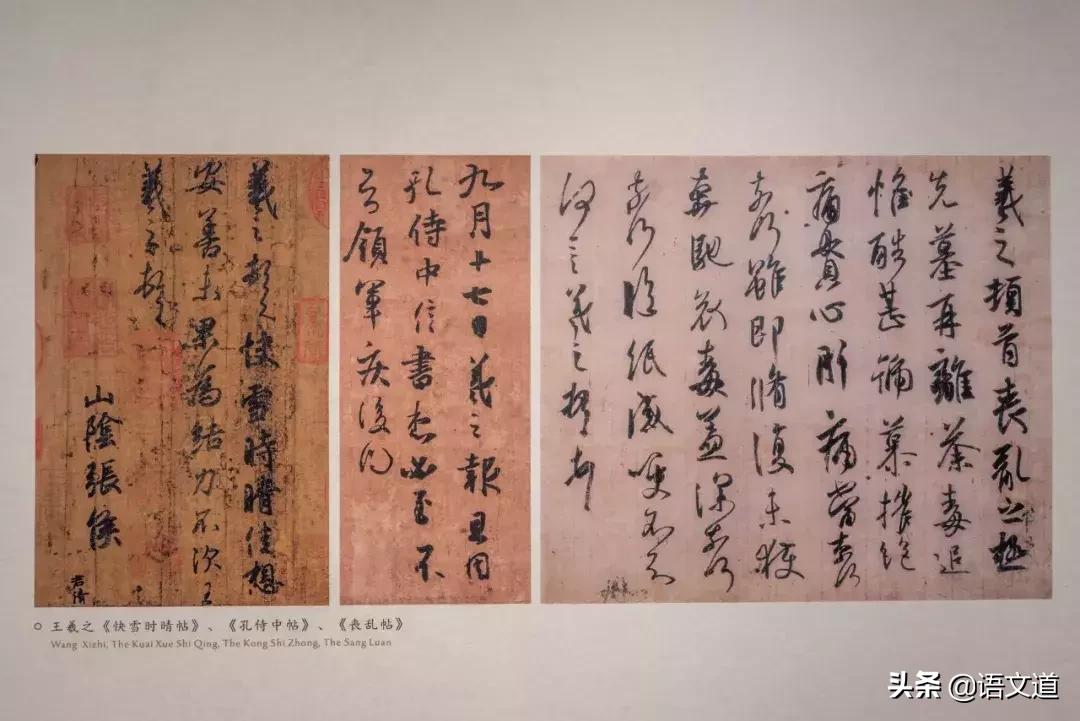 羲之頓首快雪時晴佳想
安善未果為結力不次王
羲之頓首
山陰張侯
君倩
九月十七日羲之報且因
孔侍中信書想必至不
知領軍疾後問
羲之頓首喪亂之極
先墓再離荼毒追
惟酷甚號慕摧絕
痛貫心肝痛當奈何
奈何雖即脩復未獲
奔馳哀毒益深奈何
奈何臨紙感哽不知
何言羲之頓首頓首
王羲之《快雪时晴帖》、《孔侍中帖》、《丧乱帖》
Wang Xizhi, The Kuai Xue Shi Qing, The Kong Shi Zhong, The Sang Luan
头条 @语文道